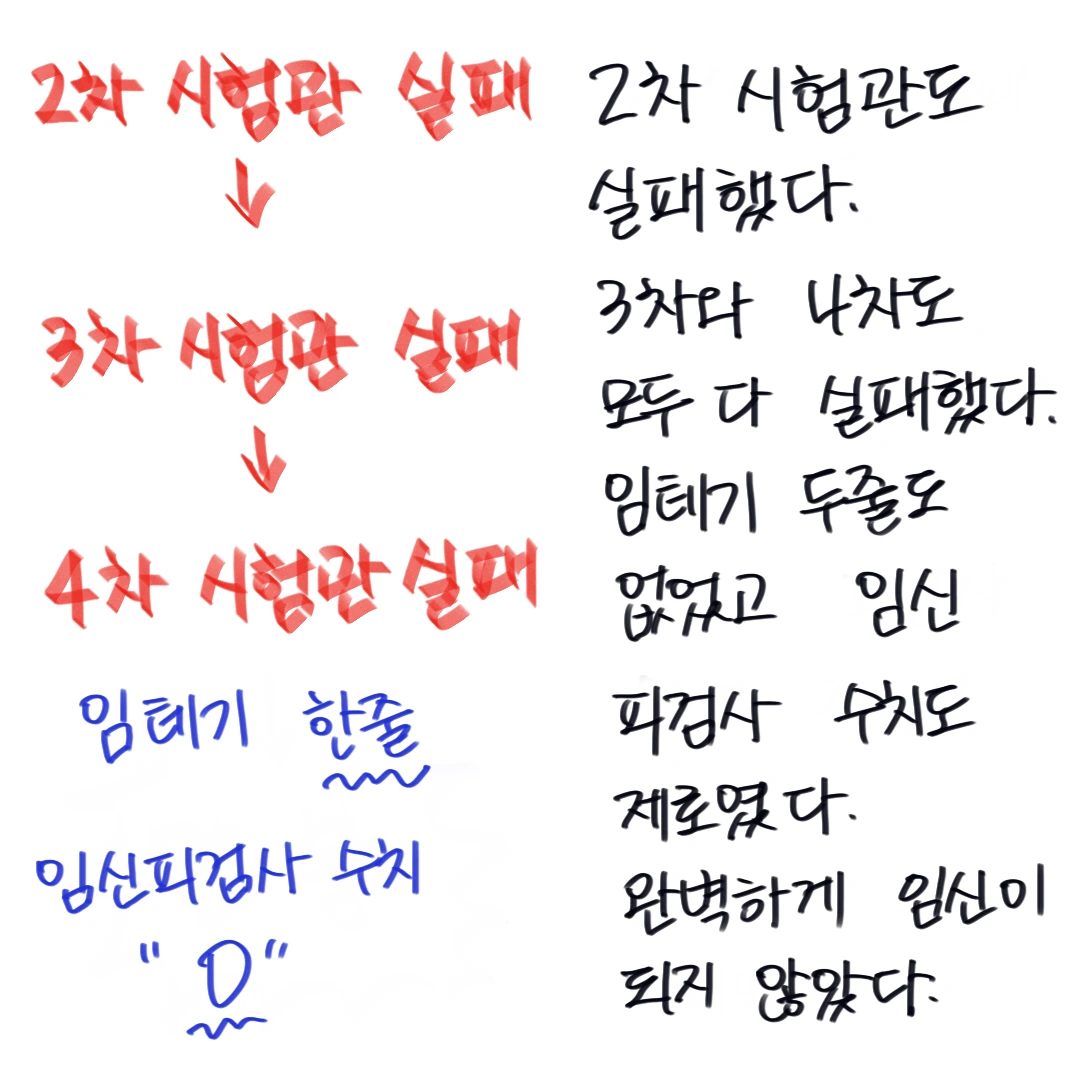 2차 시험관 실패
↓
3차 시험관 실패
↓
4차 시험관 실패
임테기 한줄
임신피검사 수치
"0"
2차 시험관도
실패했다.
3차와 4차도
모두 다 실패했다.
임테기 두줄도
없었고 임신
피검사 수치도
제로였다.
완벽하게 임신이
되지 않았다.